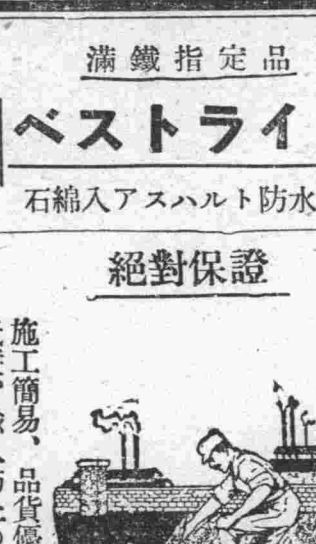 満鐵指定品
ベストライ
石綿入アスハルト防水
絕對保證
施工簡易、品貨優